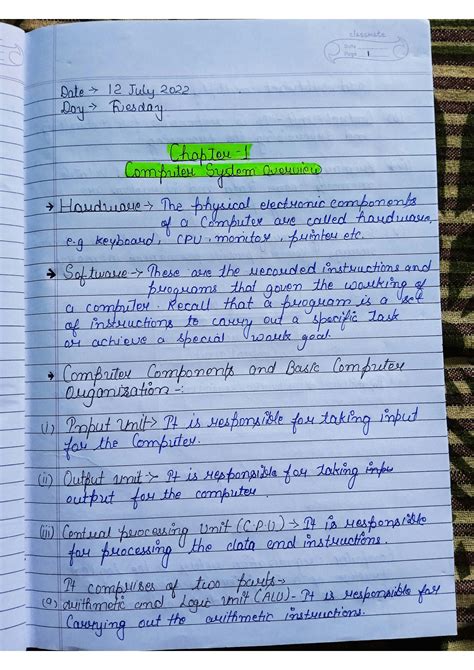 classmate
Date
Page 1
Date → 12 July 2022
Day → Tuesday
Chapter-1
Computer System Overview
→ Hardware → The physical electronic components
of a Computer are called hardware,
e.g keyboard, CPU, monitor, printer etc.
→ Software → These are the recorded instructions and
programs that govern the working of
a computer. Recall that a program is a set
of instructions to carry out a specific task
or achieve a special work goal.
→ Computer Components and Basic Computer
Organization -:
(i) Input Unit → It is responsible for taking input
for the Computer.
(ii) Output unit → It is responsible for taking inpu
output for the computer.
(iii) Central processing Unit (C.P.U) → It is responsible
for processing the data and instructions.
It comprises of two parts →
(a) Arithmetic and Logic Unit (ALU) - It is responsible for
Carrying out the arithmetic instructions.